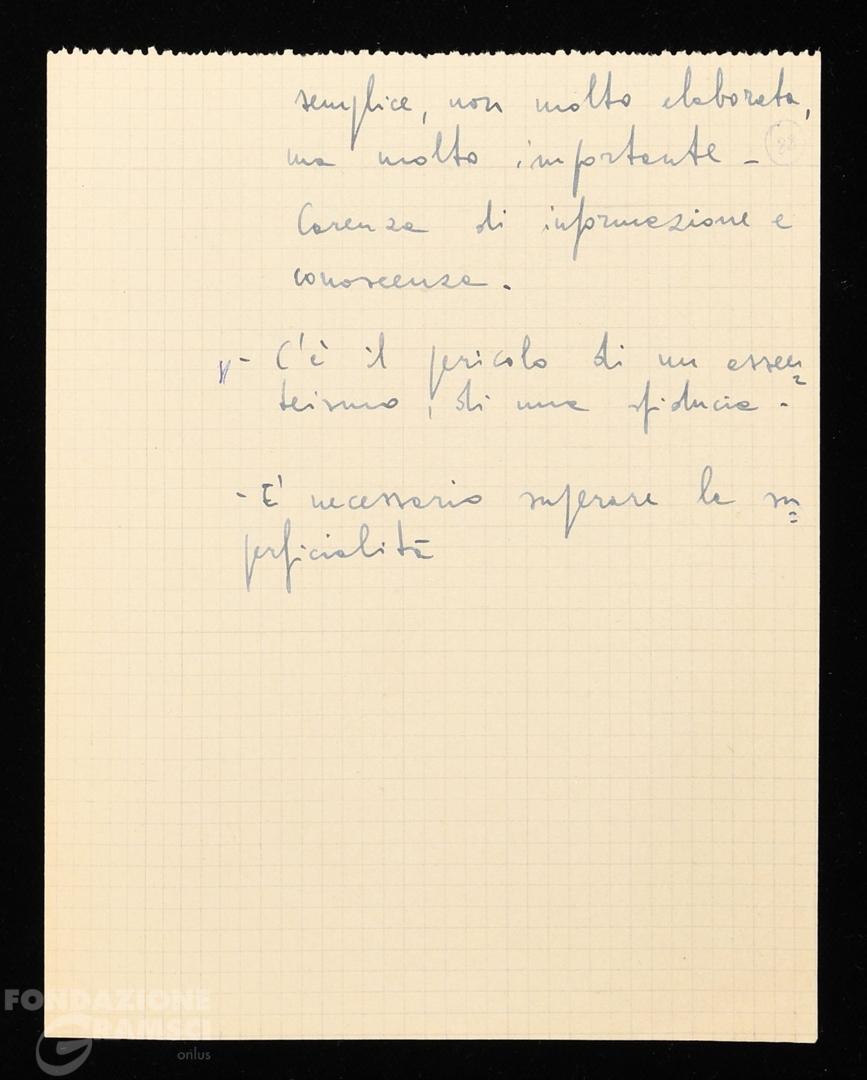 semplice, non molto elaborata,
ma molto importante -
88
Carenza di informazione e
conoscenza.
- C'è il pericolo di un assen=
teismo, di una sfiducia -
- E' necessario superare la su=
perficialità
FONDAZIONE
GRAMSCI
onlus